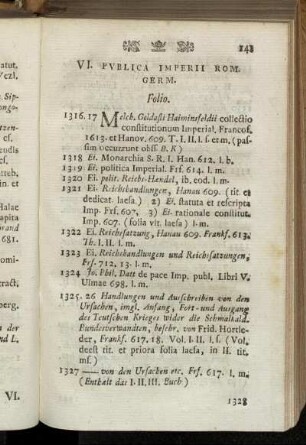 141
VI. PVBLICA IMPERII ROM.
GERM.
Folio.
1316. 17 Melch. Goldasti Haiminsfeldii collectio
constitutionum Imperial. Francof.
1613. et Hanov. 609. T. I. II. l. f. et m. (pas-
sim occurrunt obss. B. K)
1318 Ei. Monarchia S. R. I. Han. 612. l. b.
1319 Ei. politica Imperial. Frf. 614. l. m.
1320 Ei. polit. Reichs-Handel, ib. eod. l. m-
1321 Ei. Reichshandlungen, Hanau 609. (tit. et
dedicat. laesa) 2) Ei. statuta et rescripta
Imp. Frf. 607. 3) Ei. rationale constitut.
Imp. 607. (folia vlt. laesa) l. m.
1322 Ei. Reichssatzung, Hanau 609. Frankf. 613.
Th. I. II. l. m.
1323 Ei. Reichshandlungen und Reichssatzungen,
Frf. 712, 13. l. m.
1324 Jo. Phil. Datt de pace Imp. publ. Libri V.
Ulmae 698. l. m.
1325. 26 Handlungen und Ausschreiben von den
Ursachen, imgl. Anfang, Fort- und Ausgang
des Teutschen Krieges wider die Schmalkald.
Bundsverwandten, beschr. von Frid. Hortle-
der, Frankf. 617. 18. Vol. I. II. l. f. (Vol.
I. deest tit. et priora folia laesa, in II. tit.
ms.)
1327 —— von den Ursachen etc. Frf. 617. l. m.
(Enthalt das I. II. III. Buch)
1328
VI.